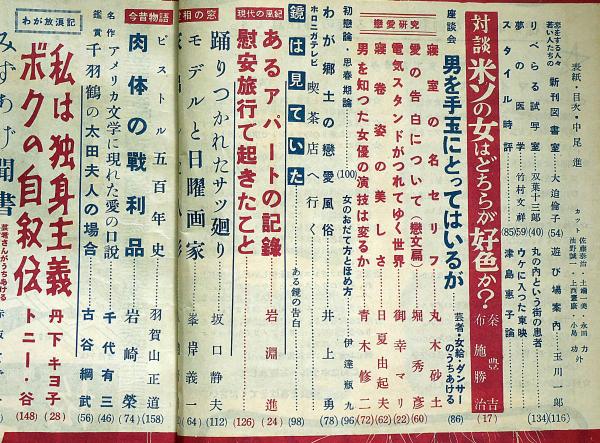 表紙・目次・中尾進
カット 佐藤泰治・土端一美・永田力
池野誠一・上西憲康・小島功 外
恋をする人々 新刊図書室 大迫倫子 (54)
遊び場案内 玉川一郎 (116)
若い人たちの りべらる試写室 双葉十三郎 (40)
丸の内という街の患者 (134)
夢の医学 竹村文祥 (59)
ウケに入った東映
スタイル時評 (85)
津島恵子論
対談 米ソの女はどちらが好色か? 秦豊吉 布施勝治 (17)
座談会 男を手玉にとってはいるが 芸者・女給・ダンサーのうちあける (86)
戀愛研究
寝室の名セリフ 丸木砂土 (60)
愛の告白について(戀文篇) 堀秀彦 (22)
電気スタンドがつれてゆく世界 御幸マリ (62)
寝巻姿の美しさ 日夏由起夫
男を知つた女優の演技は変るか 青木修二 (72)
初戀論・思春期論 (100)
女のおだて方とほめ方 伊達瓶九 (96)
わが郷土の戀愛風俗 井上勇 (78)
ホロニガテレビ 喫茶店へ行く
鏡は見ていた ある鏡の告白 (98)
現代の風紀
あるアパートの記録 岩淵進 (24)
慰安旅行で起きたこと (126)
相の窓
踊りつかれたサツ廻り 坂口静夫 (112)
モデルと日曜画家 峯岸義一 (64)
今昔物語
ピストル五百年史 羽賀山正道 (158)
肉体の戰利品 岩崎榮 (74)
名作 アメリカ文学に現れた愛の口説 千代有三 (46)
鑑賞 千羽鶴の太田夫人の場合 古谷綱武 (56)
わが放浪記
私は独身主義 丹下キヨ子 (28)
ボクの自叙伝 トニー・谷 (148)
みずあげ聞書 芸者さんがうちあける